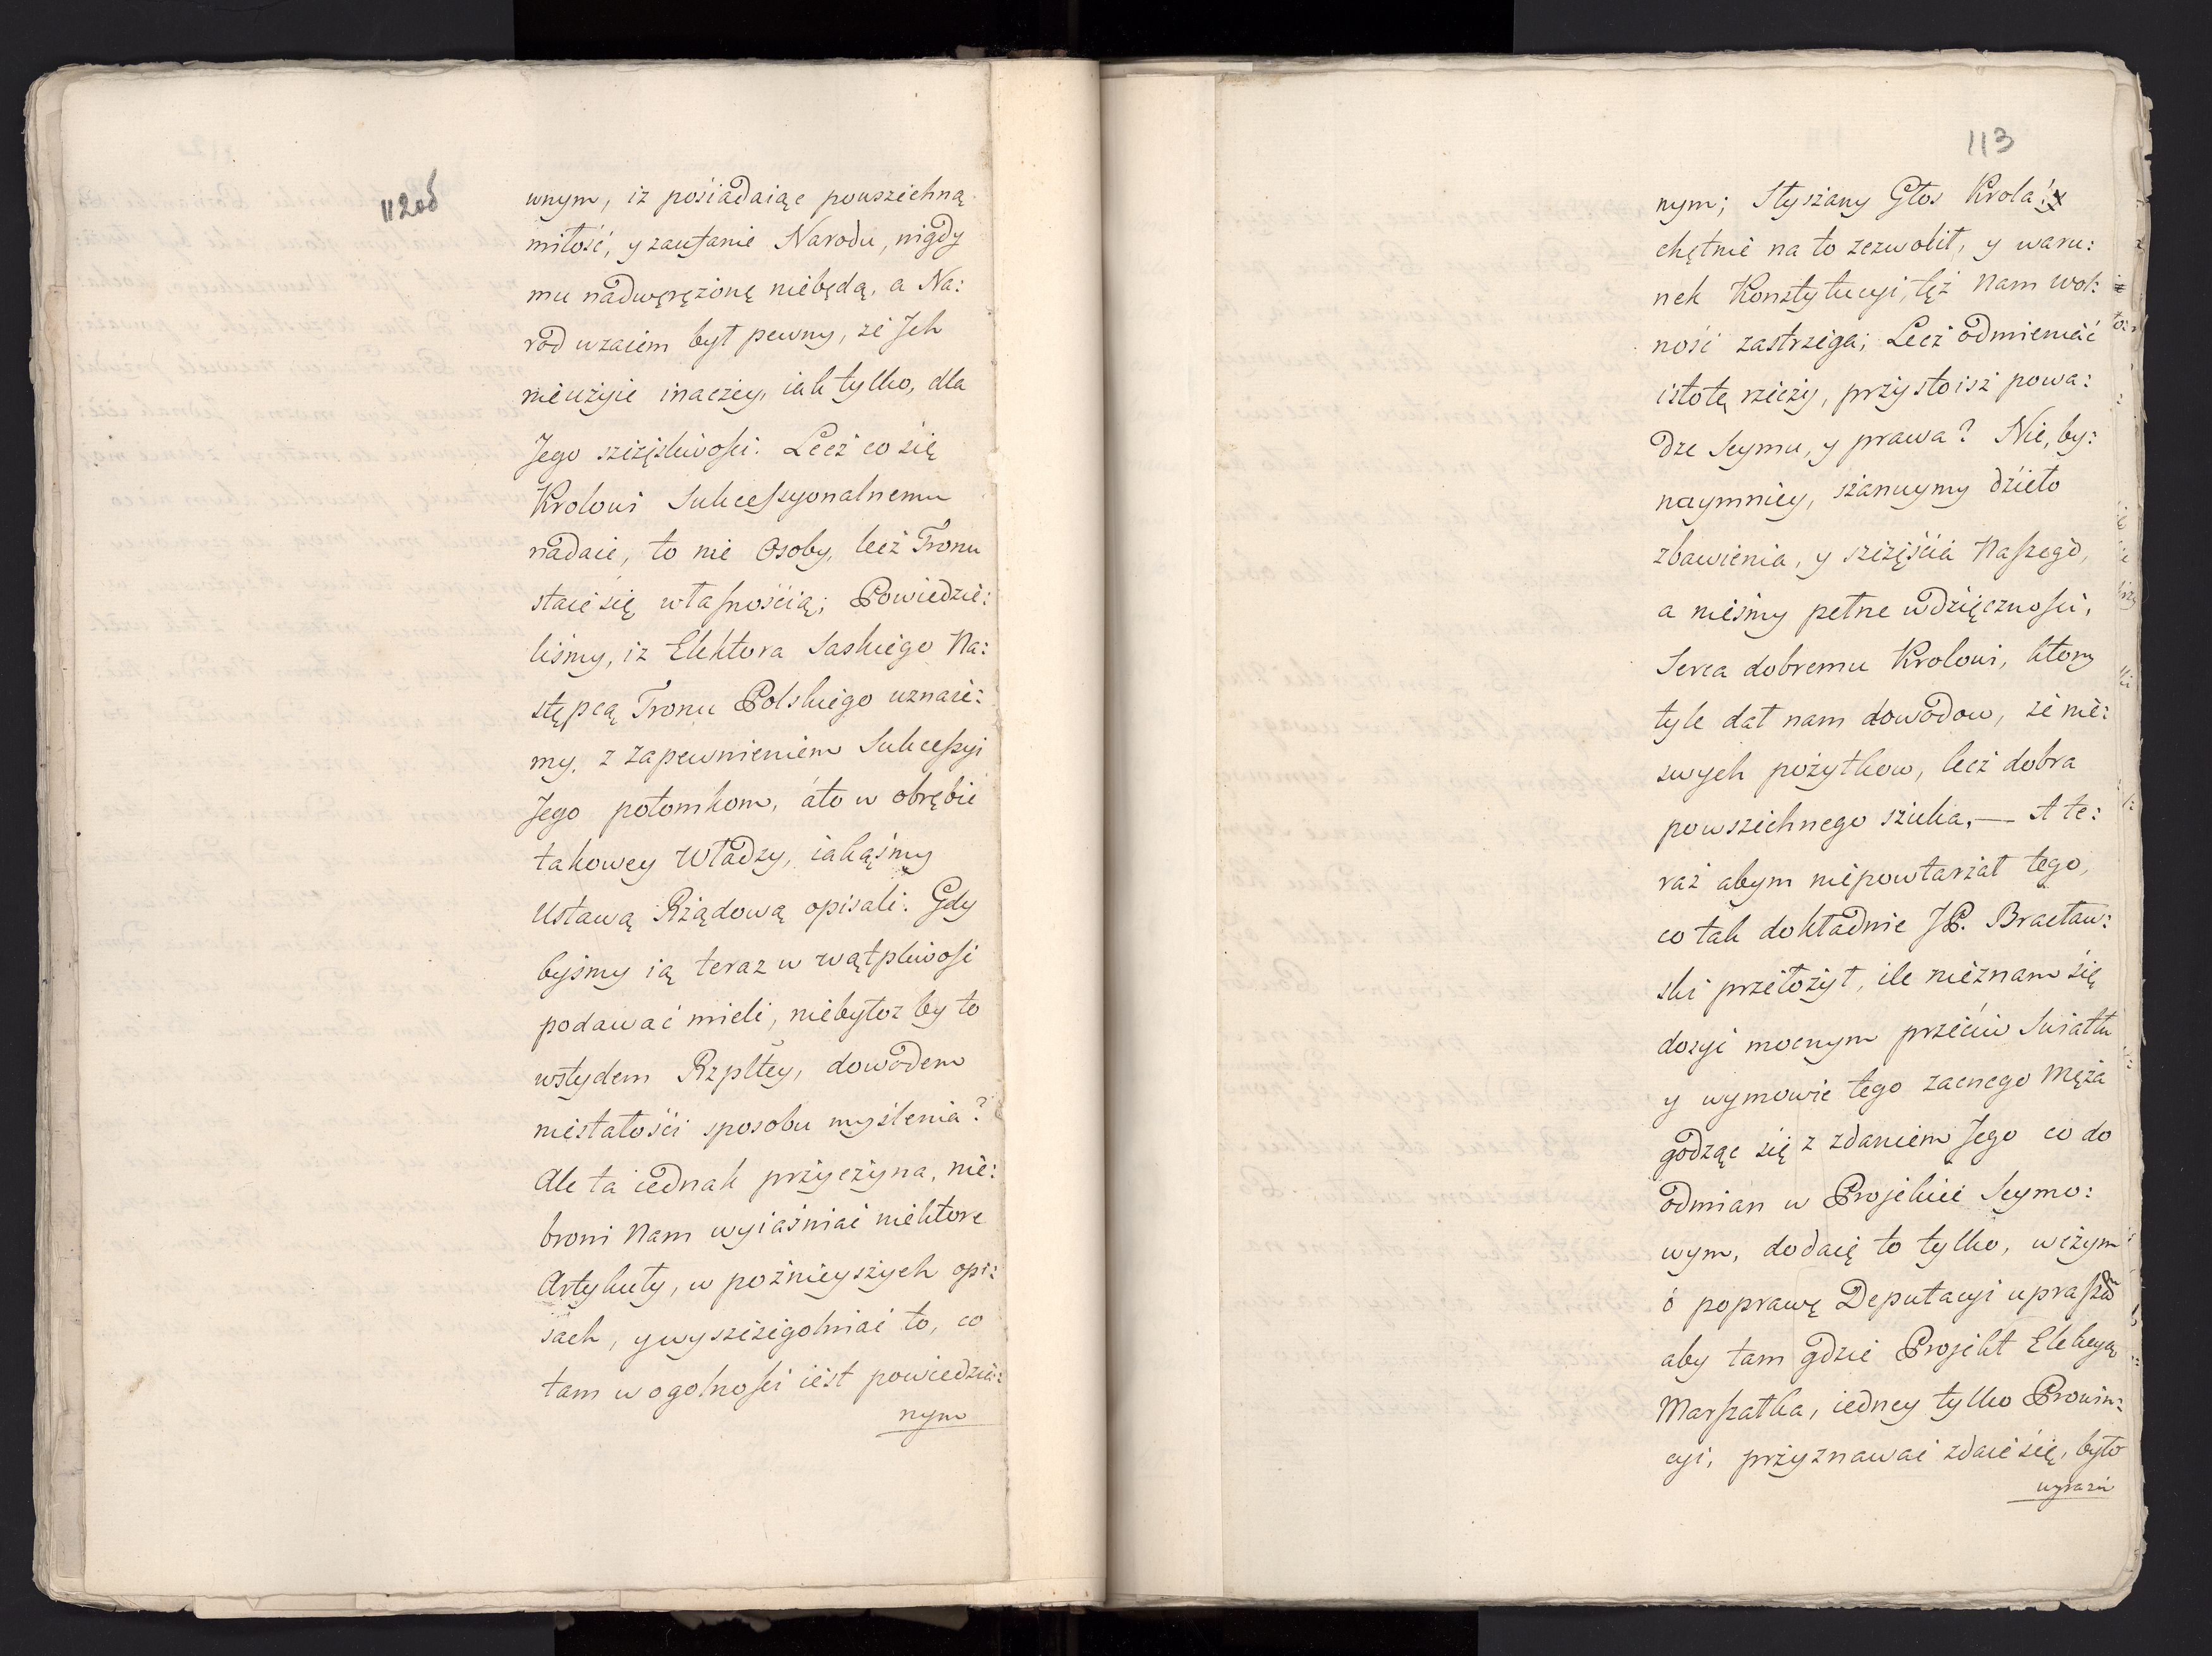 112об
wnym, iż pośiadaiąc powszechną
miłość, y zaufanie Narodu, nigdy
mu nadwęrężonę niebędą, a Na:
rod wzaiem był pewny, że Jch
nieużyie inaczey, iak tylko, dla
Jego szczęsliwośći. Lecż co się
Krolowi Sukceſsyonalnemu
nadaie, to nie Osoby, lecż Tronu
staie się właſnośćią; Powiedzie:
liśmy, iż Elektora Saskiego Na:
stępcą Tronu Polskiego uznaie:
my, z zapewnieniem Sukceſsyi
Jego potomkom, áto w obrębie
takowey Władzy, iakąśmy
Ustawą Rżądową opisali. Gdy
byśmy ią teraz w wątpliwość
podawać mieli, niebyłoz by to
wstydem Rzpltey, dowodem
niestałośći sposobu myślenia?
Ale ta iednak przyczyna, nie:
broni Nam wyiaśniać niektore
Artykuły, w poźnieyszych opi:
sach, y wyszczegolniać to, co
tam w ogolnośći iest powiedzia:
nym
113
nym; Słyszany Głos Krola!
chętnie na to zezwolił, y waru:
nek Konstytucyi, tęż Nam wol:
ność zastrzega; Lecż odmieniać
istotę rzeczy, przystoisż powa:
dze Seymu, y prawa? Nie, by:
naymniey, szanuymy dźieło
zbawienia, y szczęśćia Naſzego,
a nieśmy pełne wdzięcznośći,
Serca dobremu Krolowi, ktory
tyle dał nam dowodow, że nie:
swych pożytkow, lecż dobra
powszechnego szuka, — A te:
raż abym niepowtarzał tego,
co tak dokładnie JP. Bracław:
ski przełożył, ile nieznam się
dosyć mocnym przećiw Swiatłu
y wymowie tego zacnego Męża
godząc się z zdaniem Jego co do
odmian w Projekcie Seymo:
wym, dodaię to tylko, w czym
o poprawę Deputacyi upraſzam
aby tam gdzie Projekt Elekcyą
Marſzałka, iedney tylko Prowin:
cyi, przyznawać zdaie się, było
wyrazić